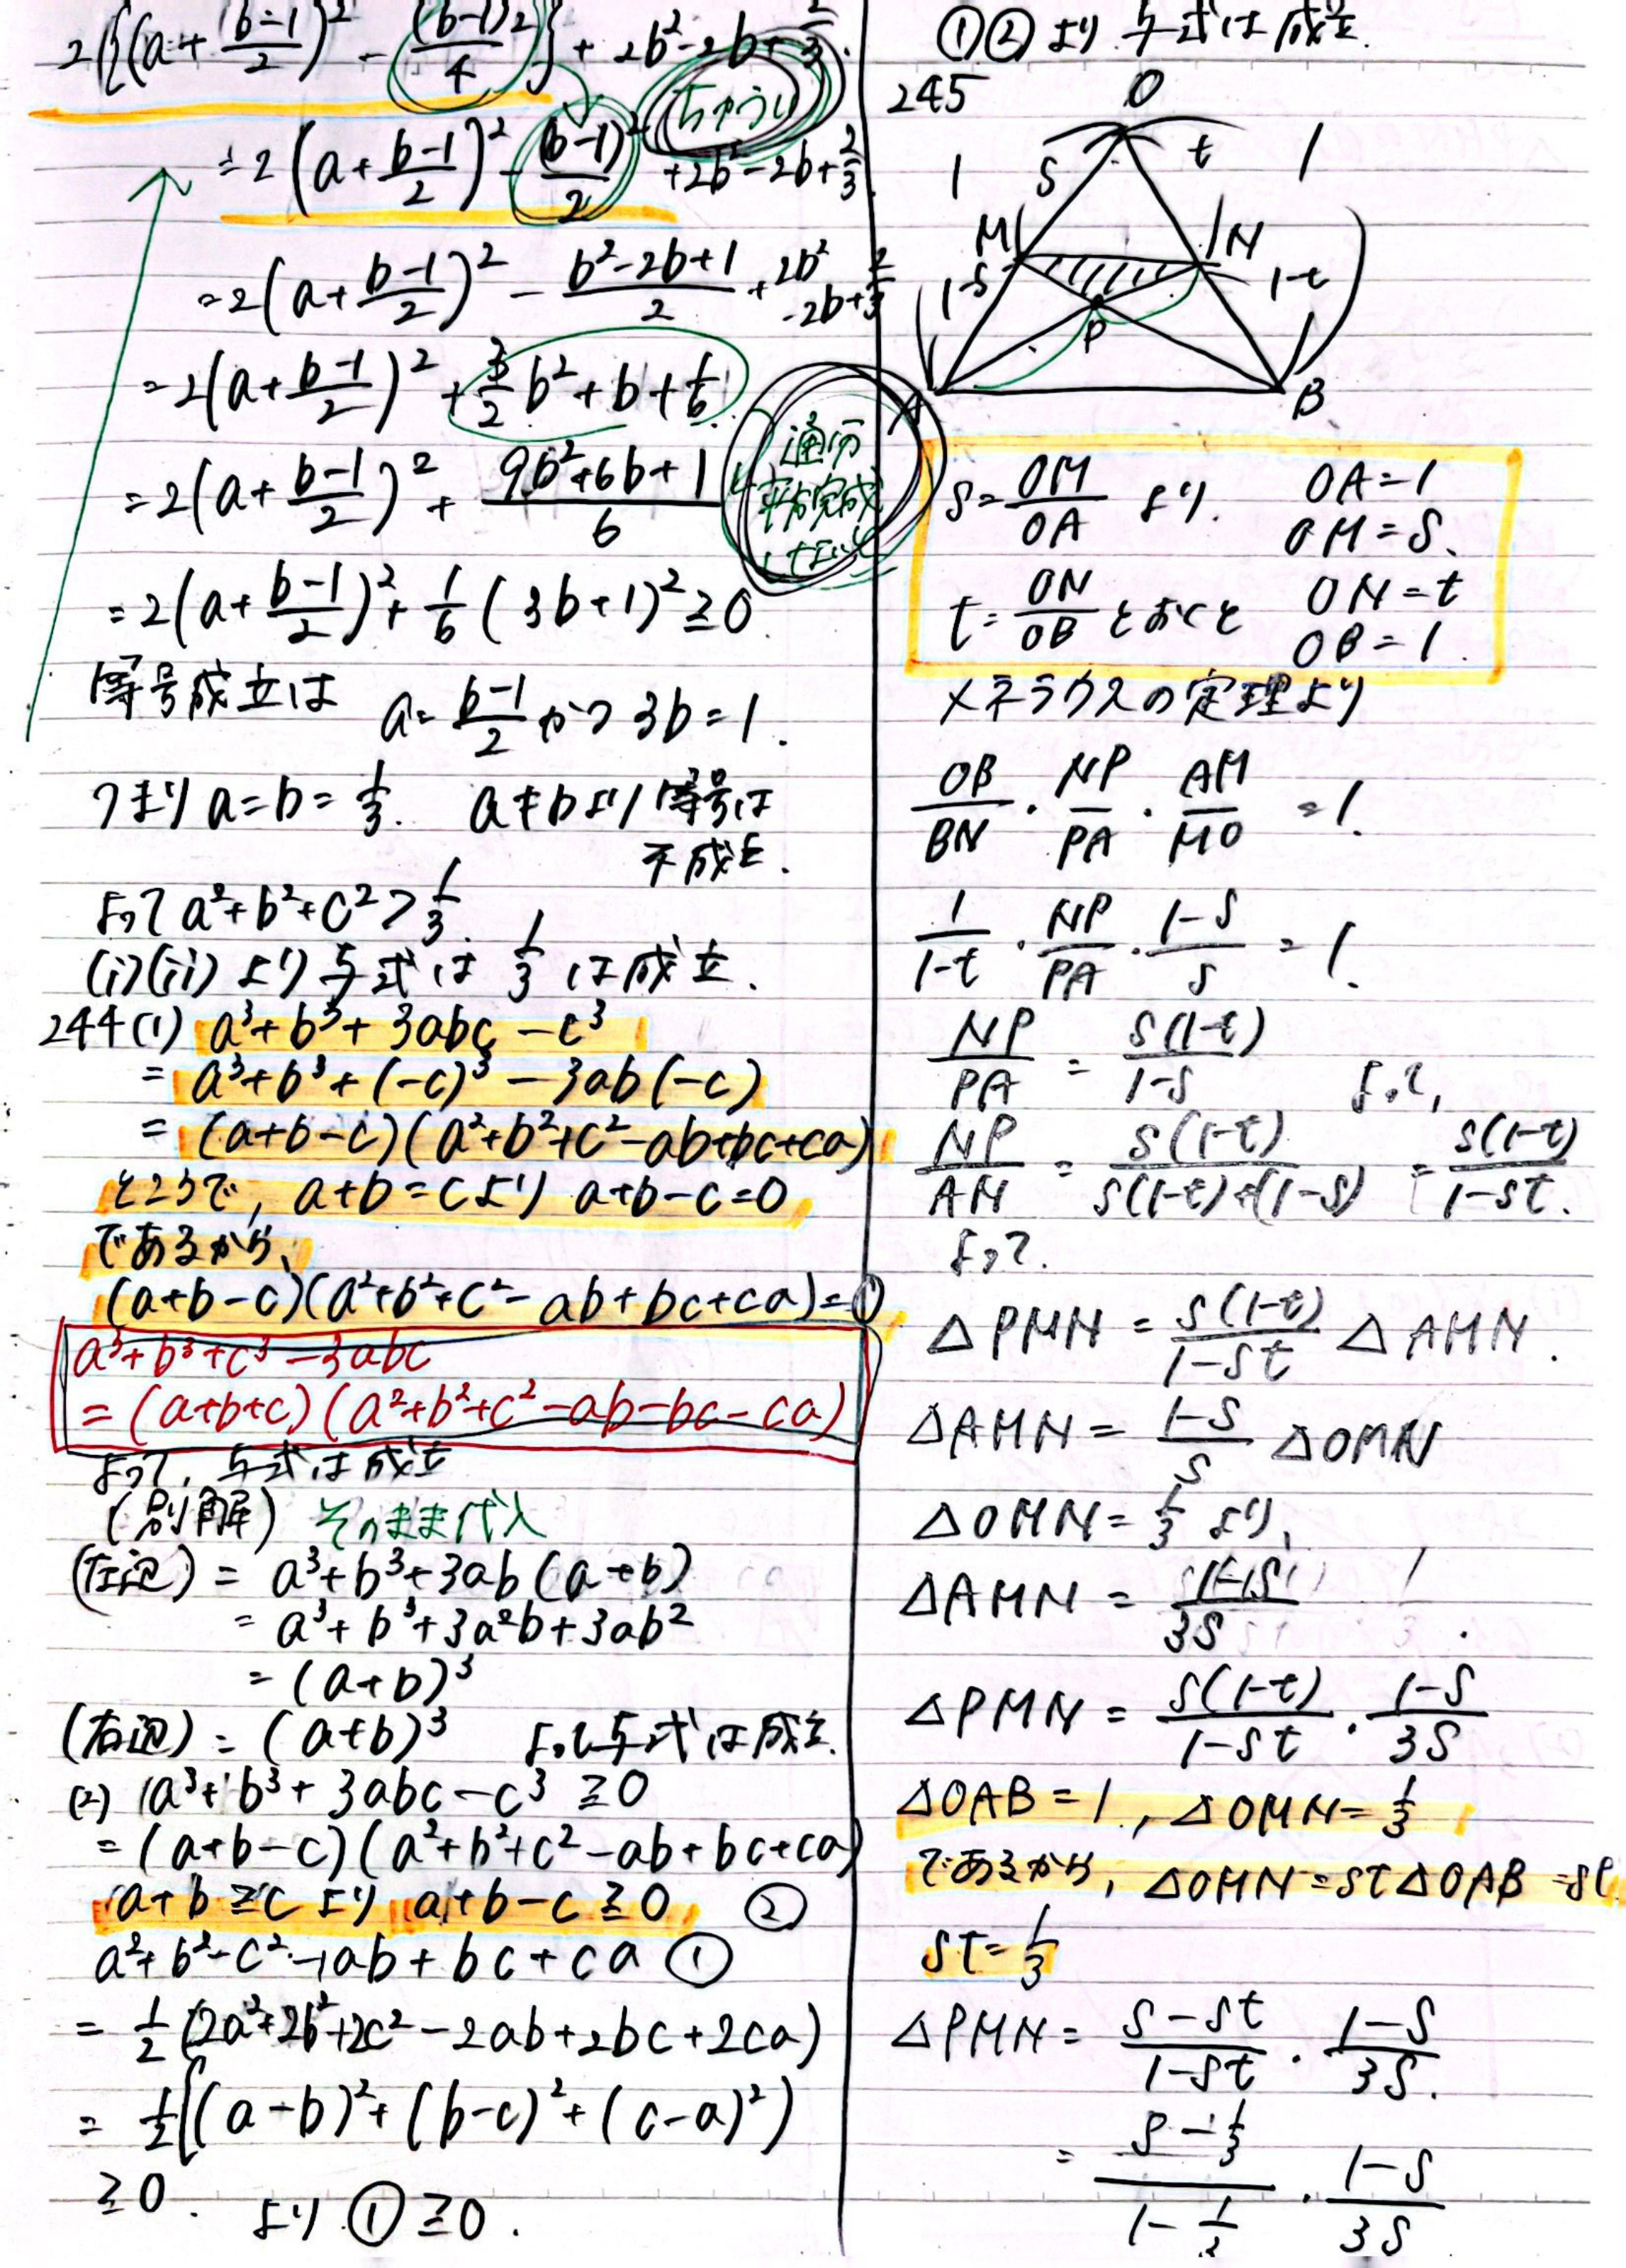 2{(a+(b-1)/2)² - (b-1)²/4} + 2b²-2b+2/3.
ちゅうい
=2(a+(b-1)/2)² - (b-1)²/2 +2b²-2b+2/3.
=2(a+(b-1)/2)² - (b²-2b+1)/2 +2b²-2b+2/3
=2(a+(b-1)/2)² + 3/2 b²+b+1/6.
通分
平方完成
=2(a+(b-1)/2)² + (9b²+6b+1)/6
=2(a+(b-1)/2)² + 1/6 (3b+1)² ≧0.
等号成立は a=(b-1)/2 かつ 3b=1.
つまり a=b=1/3. a≠bより等号は
不成立.
よって a²+b²+c²>1/3.
(i)(ii)より与式は 1/3 は成立.
244(1) a³+b³+3abc-c³
= a³+b³+(-c)³-3ab(-c)
= (a+b-c)(a²+b²+c²-ab+bc+ca)
ところで, a+b=cより a+b-c=0
であるから、
(a+b-c)(a²+b²+c²-ab+bc+ca)=0
a³+b³+c³-3abc
=(a+b+c)(a²+b²+c²-ab-bc-ca)
よって, 与式は成立
(別解) そのまま代入
(左辺) = a³+b³+3ab(a+b)
= a³+b³+3a²b+3ab²
= (a+b)³
(右辺) = (a+b)³ よって与式は成立.
(2) a³+b³+3abc-c³ ≧0
= (a+b-c)(a²+b²+c²-ab+bc+ca)
a+b≧cより a+b-c≧0 ②
a²+b²-c²-ab+bc+ca ①
= 1/2 (2a²+2b²+2c²-2ab+2bc+2ca)
= 1/2{(a-b)²+(b-c)²+(c-a)²)
≧0. より ①≧0.
①②より 与式は成立.
245
O
1 s t 1
M N
1-s 1-t
P
A B
s=OM/OA より. OA=1
OM=s、
t=ON/OB とおくと ON=t
OB=1.
メネラウスの定理より
OB/BN・NP/PA・AM/MO =1.
1/(1-t)・NP/PA・(1-s)/s =1.
NP/PA = s(1-t)/(1-s) よって,
NP/AN = s(1-t)/(s(1-t)+(1-s)) = s(1-t)/(1-st).
よって.
△PMN = s(1-t)/(1-st) △AMN.
△AMN = (1-s)/s △OMN
△OMN=1/3 より、
△AMN = (1-s)/3s
△PMN = s(1-t)/(1-st)・(1-s)/3s
△OAB=1, △OMN=1/3
であるから, △OMN=st△OAB=st.
st=1/3
△PMN = (s-st)/(1-st)・(1-s)/3s.
= (s-1/3)/(1-1/3)・(1-s)/3s